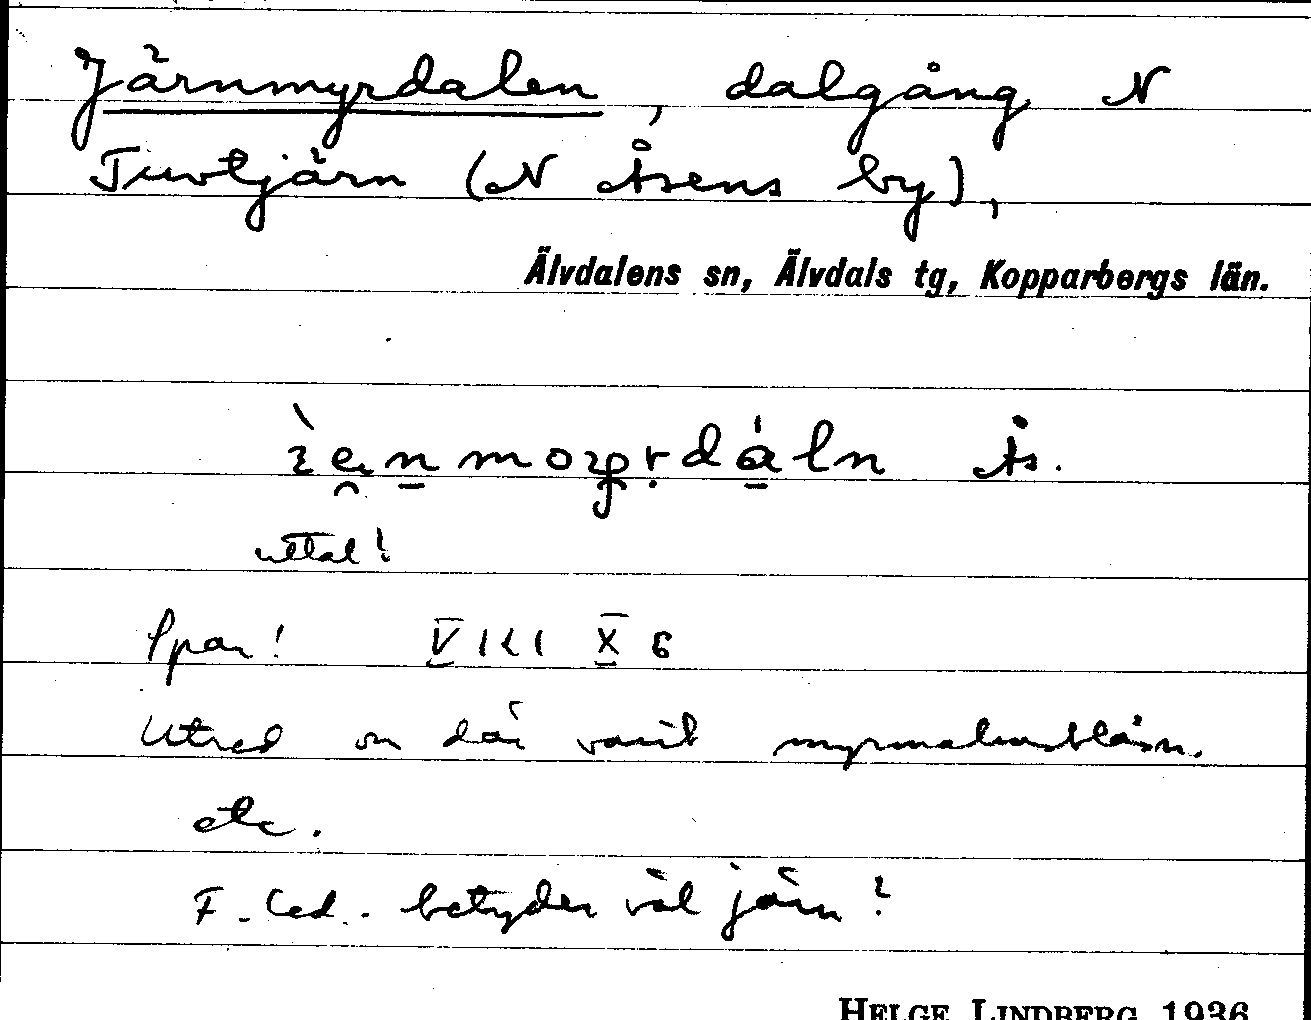 Järnmyrdalen, dalgång N
Tuvtjärn (N Åsens by),
Älvdalens sn, Älvdals tg, Kopparbergs län.
Ås.
uttal!
Spar! VIII X 6
Utred om där varit myrmalmsblåsn.
etc.
F. led. betyder väl järn?
HELGE LINDBERG 1936